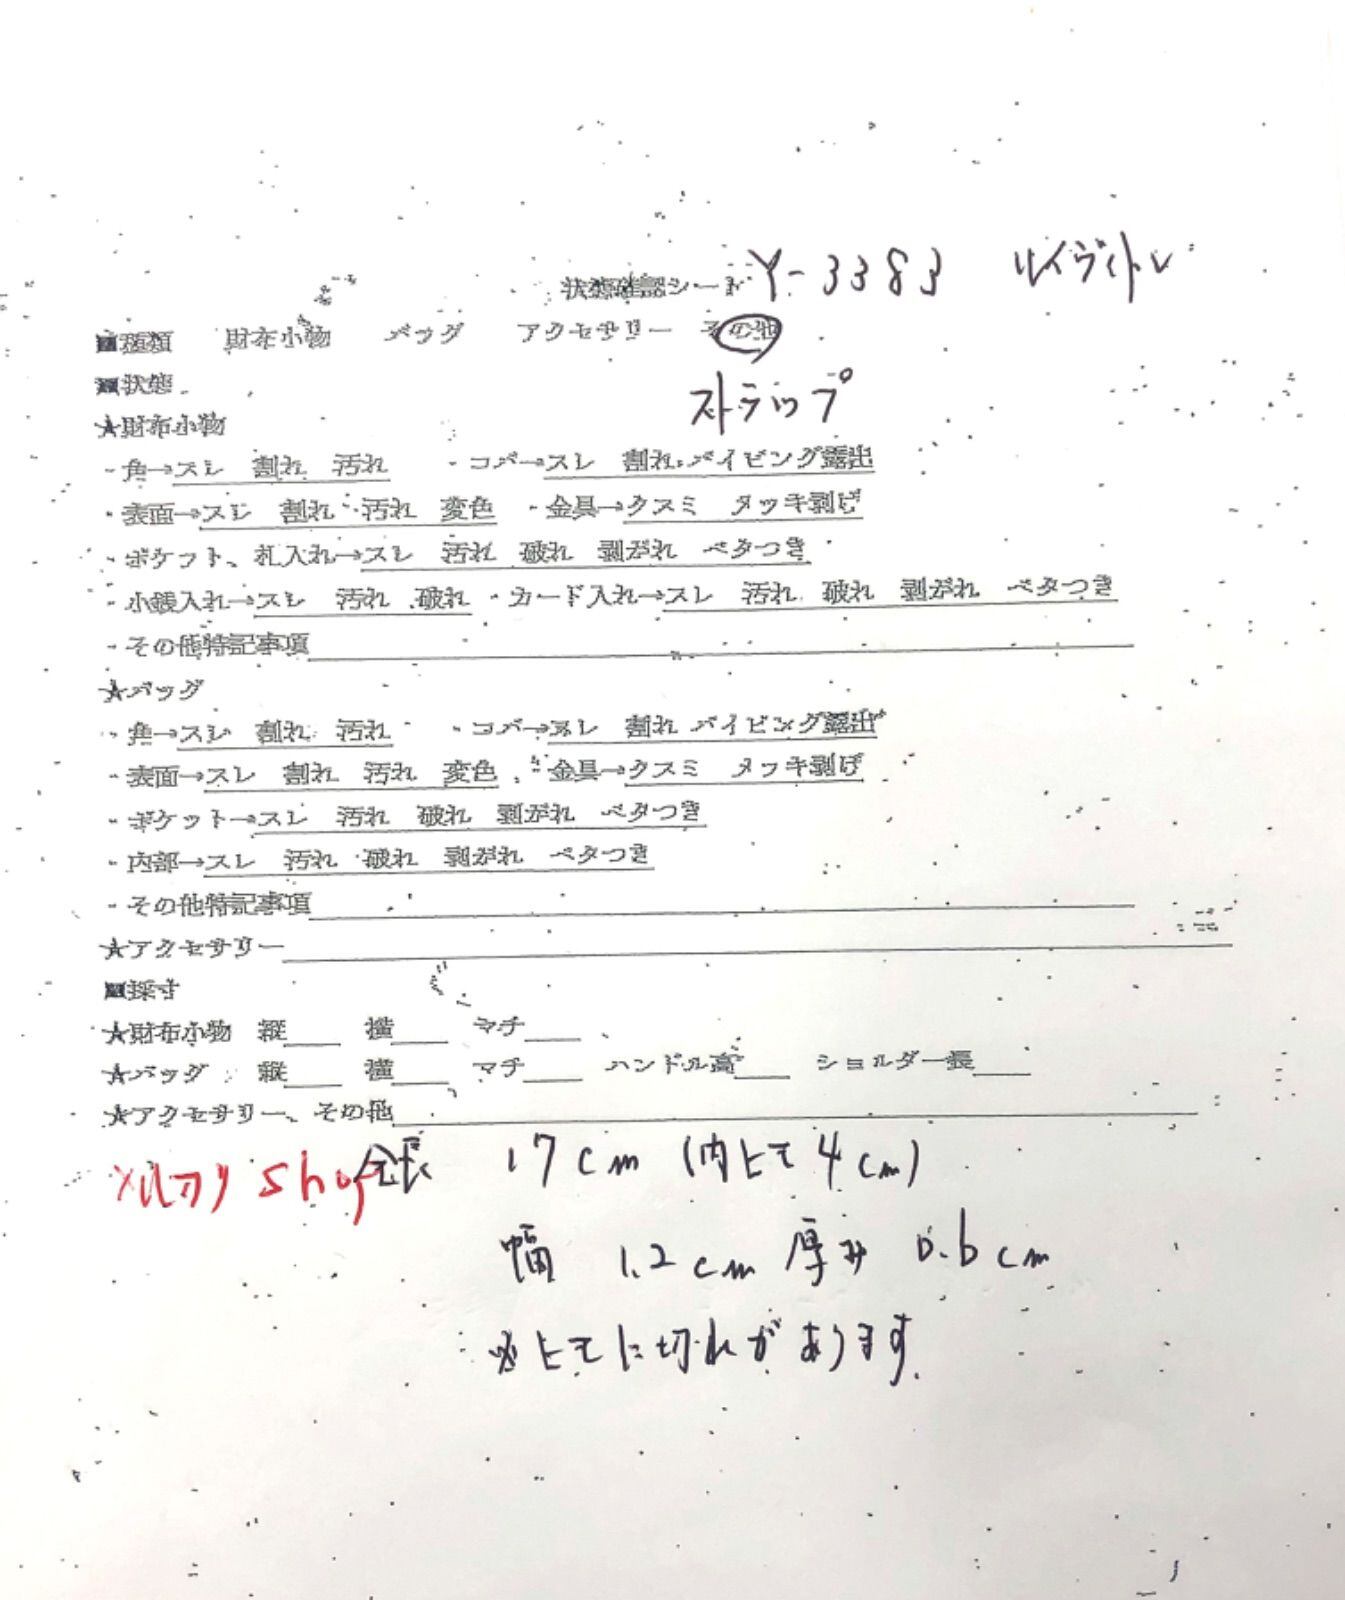 状態確認シート Y-3383 ルイヴィトン
■種類 財布小物 バッグ アクセサリー その他
■状態 ストラップ
★財布小物
・角→スレ 割れ 汚れ ・コバ→スレ 割れ パイピング露出
・表面→スレ 割れ 汚れ 変色 ・金具→クスミ メッキ剥げ
・ポケット、札入れ→スレ 汚れ 破れ 剥がれ ベタつき
・小銭入れ→スレ 汚れ 破れ ・カード入れ→スレ 汚れ 破れ 剥がれ ベタつき
・その他特記事項
★バッグ
・角→スレ 割れ 汚れ ・コバ→スレ 割れ パイピング露出
・表面→スレ 割れ 汚れ 変色 ・金具→クスミ メッキ剥げ
・ポケット→スレ 汚れ 破れ 剥がれ ベタつき
・内部→スレ 汚れ 破れ 剥がれ ベタつき
・その他特記事項
★アクセサリー
■採寸
★財布小物 縦 横 マチ
★バッグ 縦 横 マチ ハンドル高 ショルダー長
★アクセサリー、その他
shop 全長 17cm (内ヒモ4cm)
幅 1.2cm 厚み 0.6cm
※ヒモに切れがあります